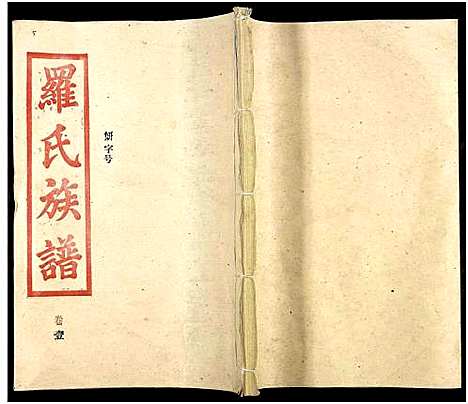 羅氏族譜
卷壹
妍字号